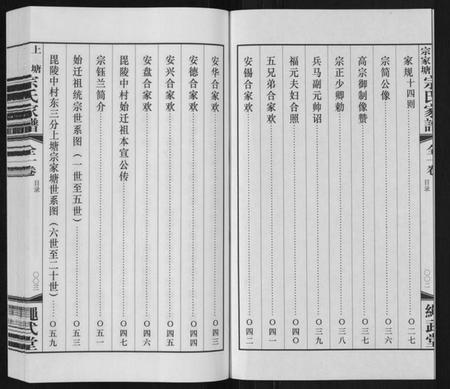 宗家塘宗氏家譜
全一卷
目录
〇〇二
繩武堂
家规十四则……〇二七
宗简公像……〇三六
高宗御制像赞……〇三七
宗正少卿勅……〇三八
兵马副元帅诏……〇三九
福元夫妇合照……〇四〇
五兄弟合家欢……〇四一
安锡合家欢……〇四二
安华合家欢……〇四三
安德合家欢……〇四四
安兴合家欢……〇四五
安盘合家欢……〇四六
毘陵中村始迁祖本宣公传……〇四七
宗钰兰简介……〇五一
始迁祖统宗世系图（一世至五世）
毘陵中村东三分上塘宗家塘世系图（六世至二十世）……〇五九
上塘宗氏家譜
全一卷
目录
〇〇三
繩武堂